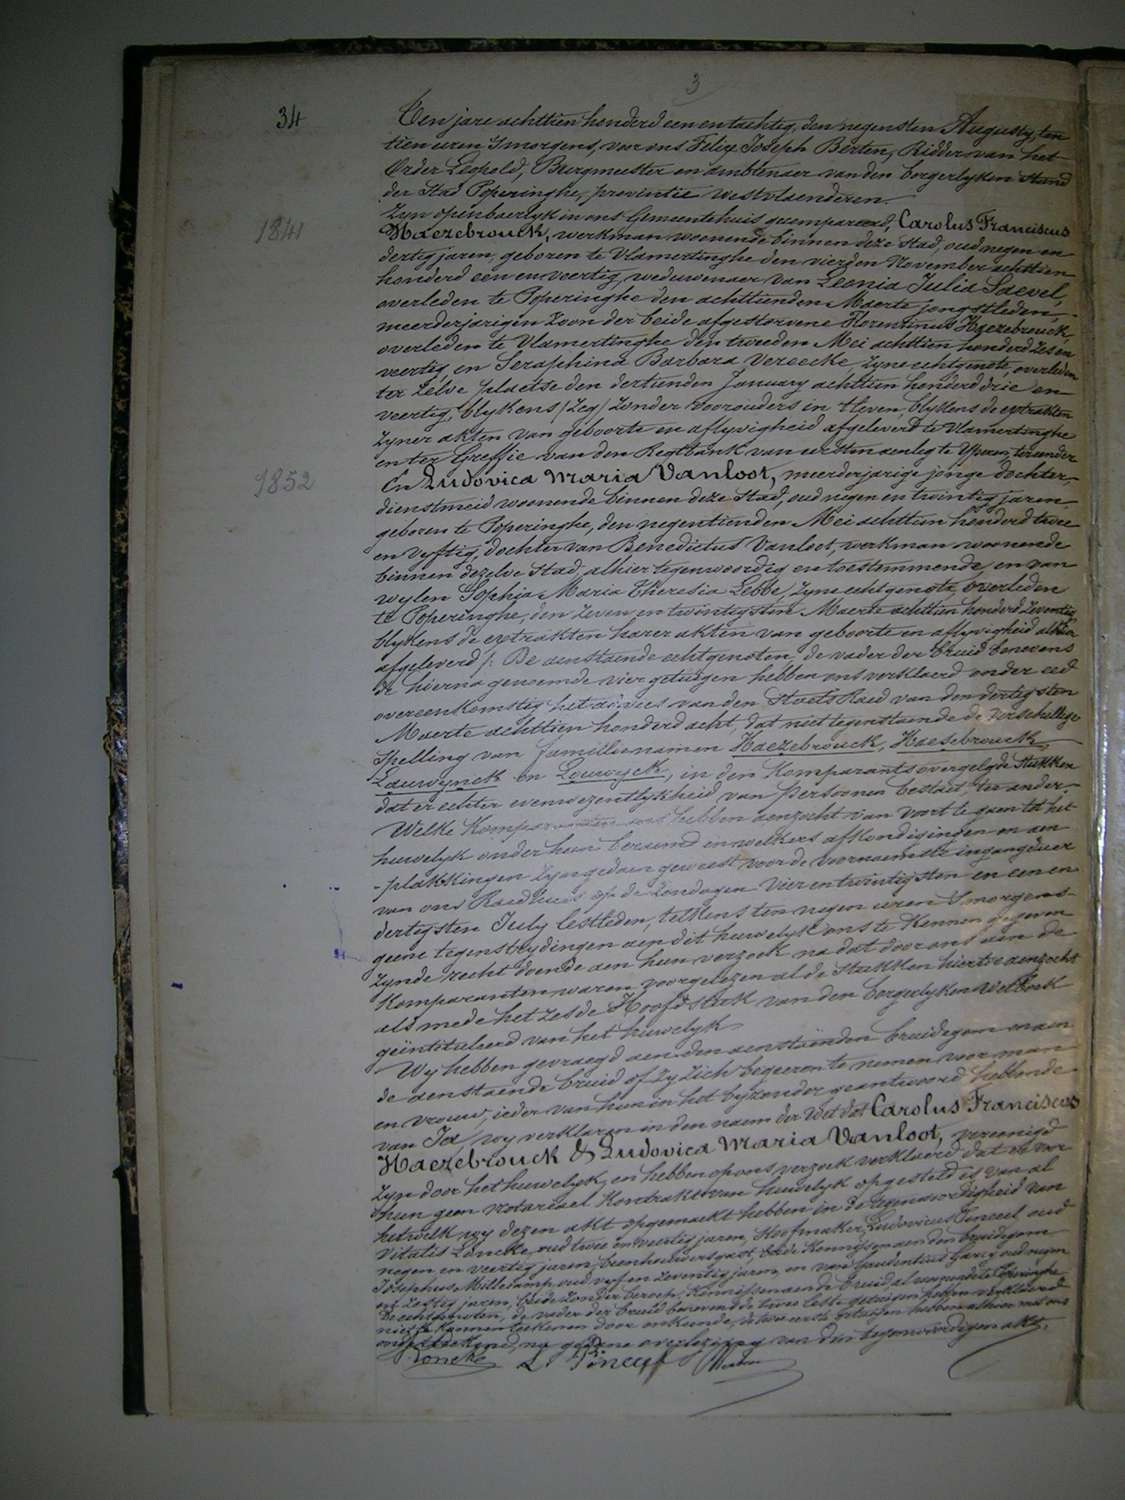 3
34
Ten jare achttien honderd een en tachtig, den negensten Augusty, ten
tien uren 's morgens, voor ons Felix Joseph Berten, Ridder van het
Order Leopold, Burgmeester en ambtenaer van den borgerlyken stand
der Stad Poperinghe, provintie westvlaenderen.
Zyn openbaerlyk in ons Gemeentehuis gecompareerd, Carolus Franciscus
1841
Haezebrouck, werkman woonende binnen deze stad, oud negen en
dertig jaren, geboren te Vlamertinghe den vierden November achttien
honderd een en veertig, weduwenaer van Leonia Julia Saevel,
overleden te Poperinghe den achttienden Maerte jongstleden,
meerderjarigen zoon der beide afgestorvene Florentinus Haezebrouck,
overleden te Vlamertinghe den tweeden Mei achttien honderd zes en
veertig, en Seraphina Barbara Vereecke, zyne echtgenote, overleden
ter zelve plaetse den dertienden January achttien honderd drie en
veertig, blykens /zeg/ zonder voorouders in t leven, blykens de extrakten
zyner akten van geboorte en aflyvigheid afgeleverd te Vlamertinghe
en ter Greffie van den Regtbank van eersten aenleg te Yperen, ter eender
1852
En Ludovica Maria Vanloot, meerderjarige jonge dochter
dienstmeid woonende binnen deze Stad, oud negen en twintig jaren,
geboren te Poperinghe, den negentienden Mei achttien honderd twee
en vyftig, dochter van Benedictus Vanloot, werkman woonende
binnen dezelve Stad, alhier tegenwoordig en toestemmende, en van
wylen Sophia Maria Theresia Lebbe, zyne echtgenote, overleden
te Poperinghe, den zeven en twintigsten Maerte achttien honderd zeventig
blykens de extrakten harer akten van geboorte en aflyvigheid alhier
afgeleverd /: De aenstaende echtgenoten, de vader der bruid benevens
de hierna genoemde vier getuigen hebben ons verklaerd onder eed
overeenkomstig het advies van den Staets Raed van den dertigsten
Maerte achttien honderd acht, dat niet tegenstaende de verschillige
spelling van familienamen Haezebrouck, Haesebrouck,
Lauwynck en Louwyck, in den Komparants overgelegde stukken
dat er echter evenwezentlykheid van persoonen bestaet, ter ander.
Welke Komparanten ons hebben aenzocht van voort te gaen tot het
huwelyk onder hun beraemd en welkers afkondigingen en aen
-plakkingen zyn gedaen geweest voor de voornaemste ingangdeur
van ons Raedhuis op de Zondagen vier en twintigsten en een en
dertigsten July lestleden, telkens ten negen uren 's morgens
geene tegenstrydingen aen dit huwelyk ons te Kennen gegeven
zynde recht doende aen hun verzoek na dat door ons aen de
Komparanten waren voorgelezen al de Stukken hiertoe aenzocht
als mede het zesde Hoofdstuk van den borgerlyken Wetboek
geïntituleerd van het huwelyk
Wy hebben gevraegd aen den aenstaenden bruidegom en aen
de aenstaende bruid of zy zich begeeren te nemen voor man
en vrouw, ieder van hun in het byzonder geantwoord hebbende
van Ja, wy verklaren in den naem der Wet dat Carolus Franciscus
Haezebrouck & Ludovica Maria Vanloot, vereenigd
zyn door het huwelyk, en hebben op ons verzoek verklaerd dat er voor
hun geen notarieel Kontrakt van huwelyk opgesteld is van al
hetwelk wy dezen akt opgemaekt hebben in de tegenwoordigheid van
Vitalis Loncke, oud twee en veertig jaren, Hoofmaker, Ludovicus Pineel oud
negen en veertig jaren, beenhouwersgast, beide Kennissen aen den bruidegom
Josephus Millecamp, oud vyf en zeventig jaren, en van Gaudentius oud negen
en zestig jaren, beide zonder beroep, Kennissen aen de bruid al woonachtig te Poperinghe
De echtgenoten, de vader der bruid benevens de twee leste getuigen hebben verklaerd
niet te kunnen teekenen door onkunde, de twee eerste getuigen hebben alhier met ons
onderteekend, na gedane voorlezing van den tegenwoordigen akt.
Loncke L Pineel Berten